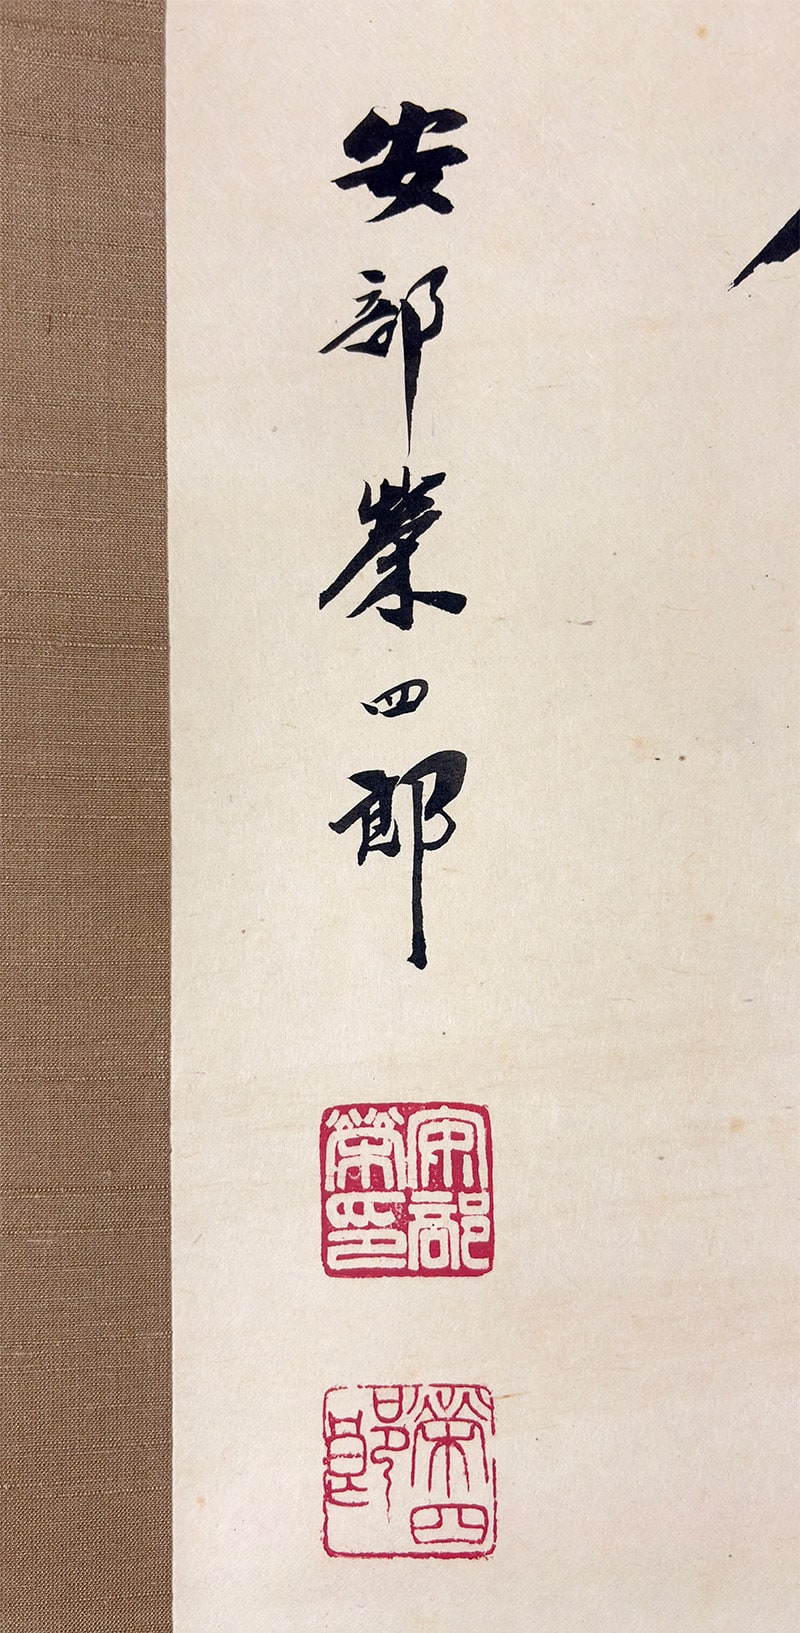 安部榮四郎
安部榮印
榮四郎